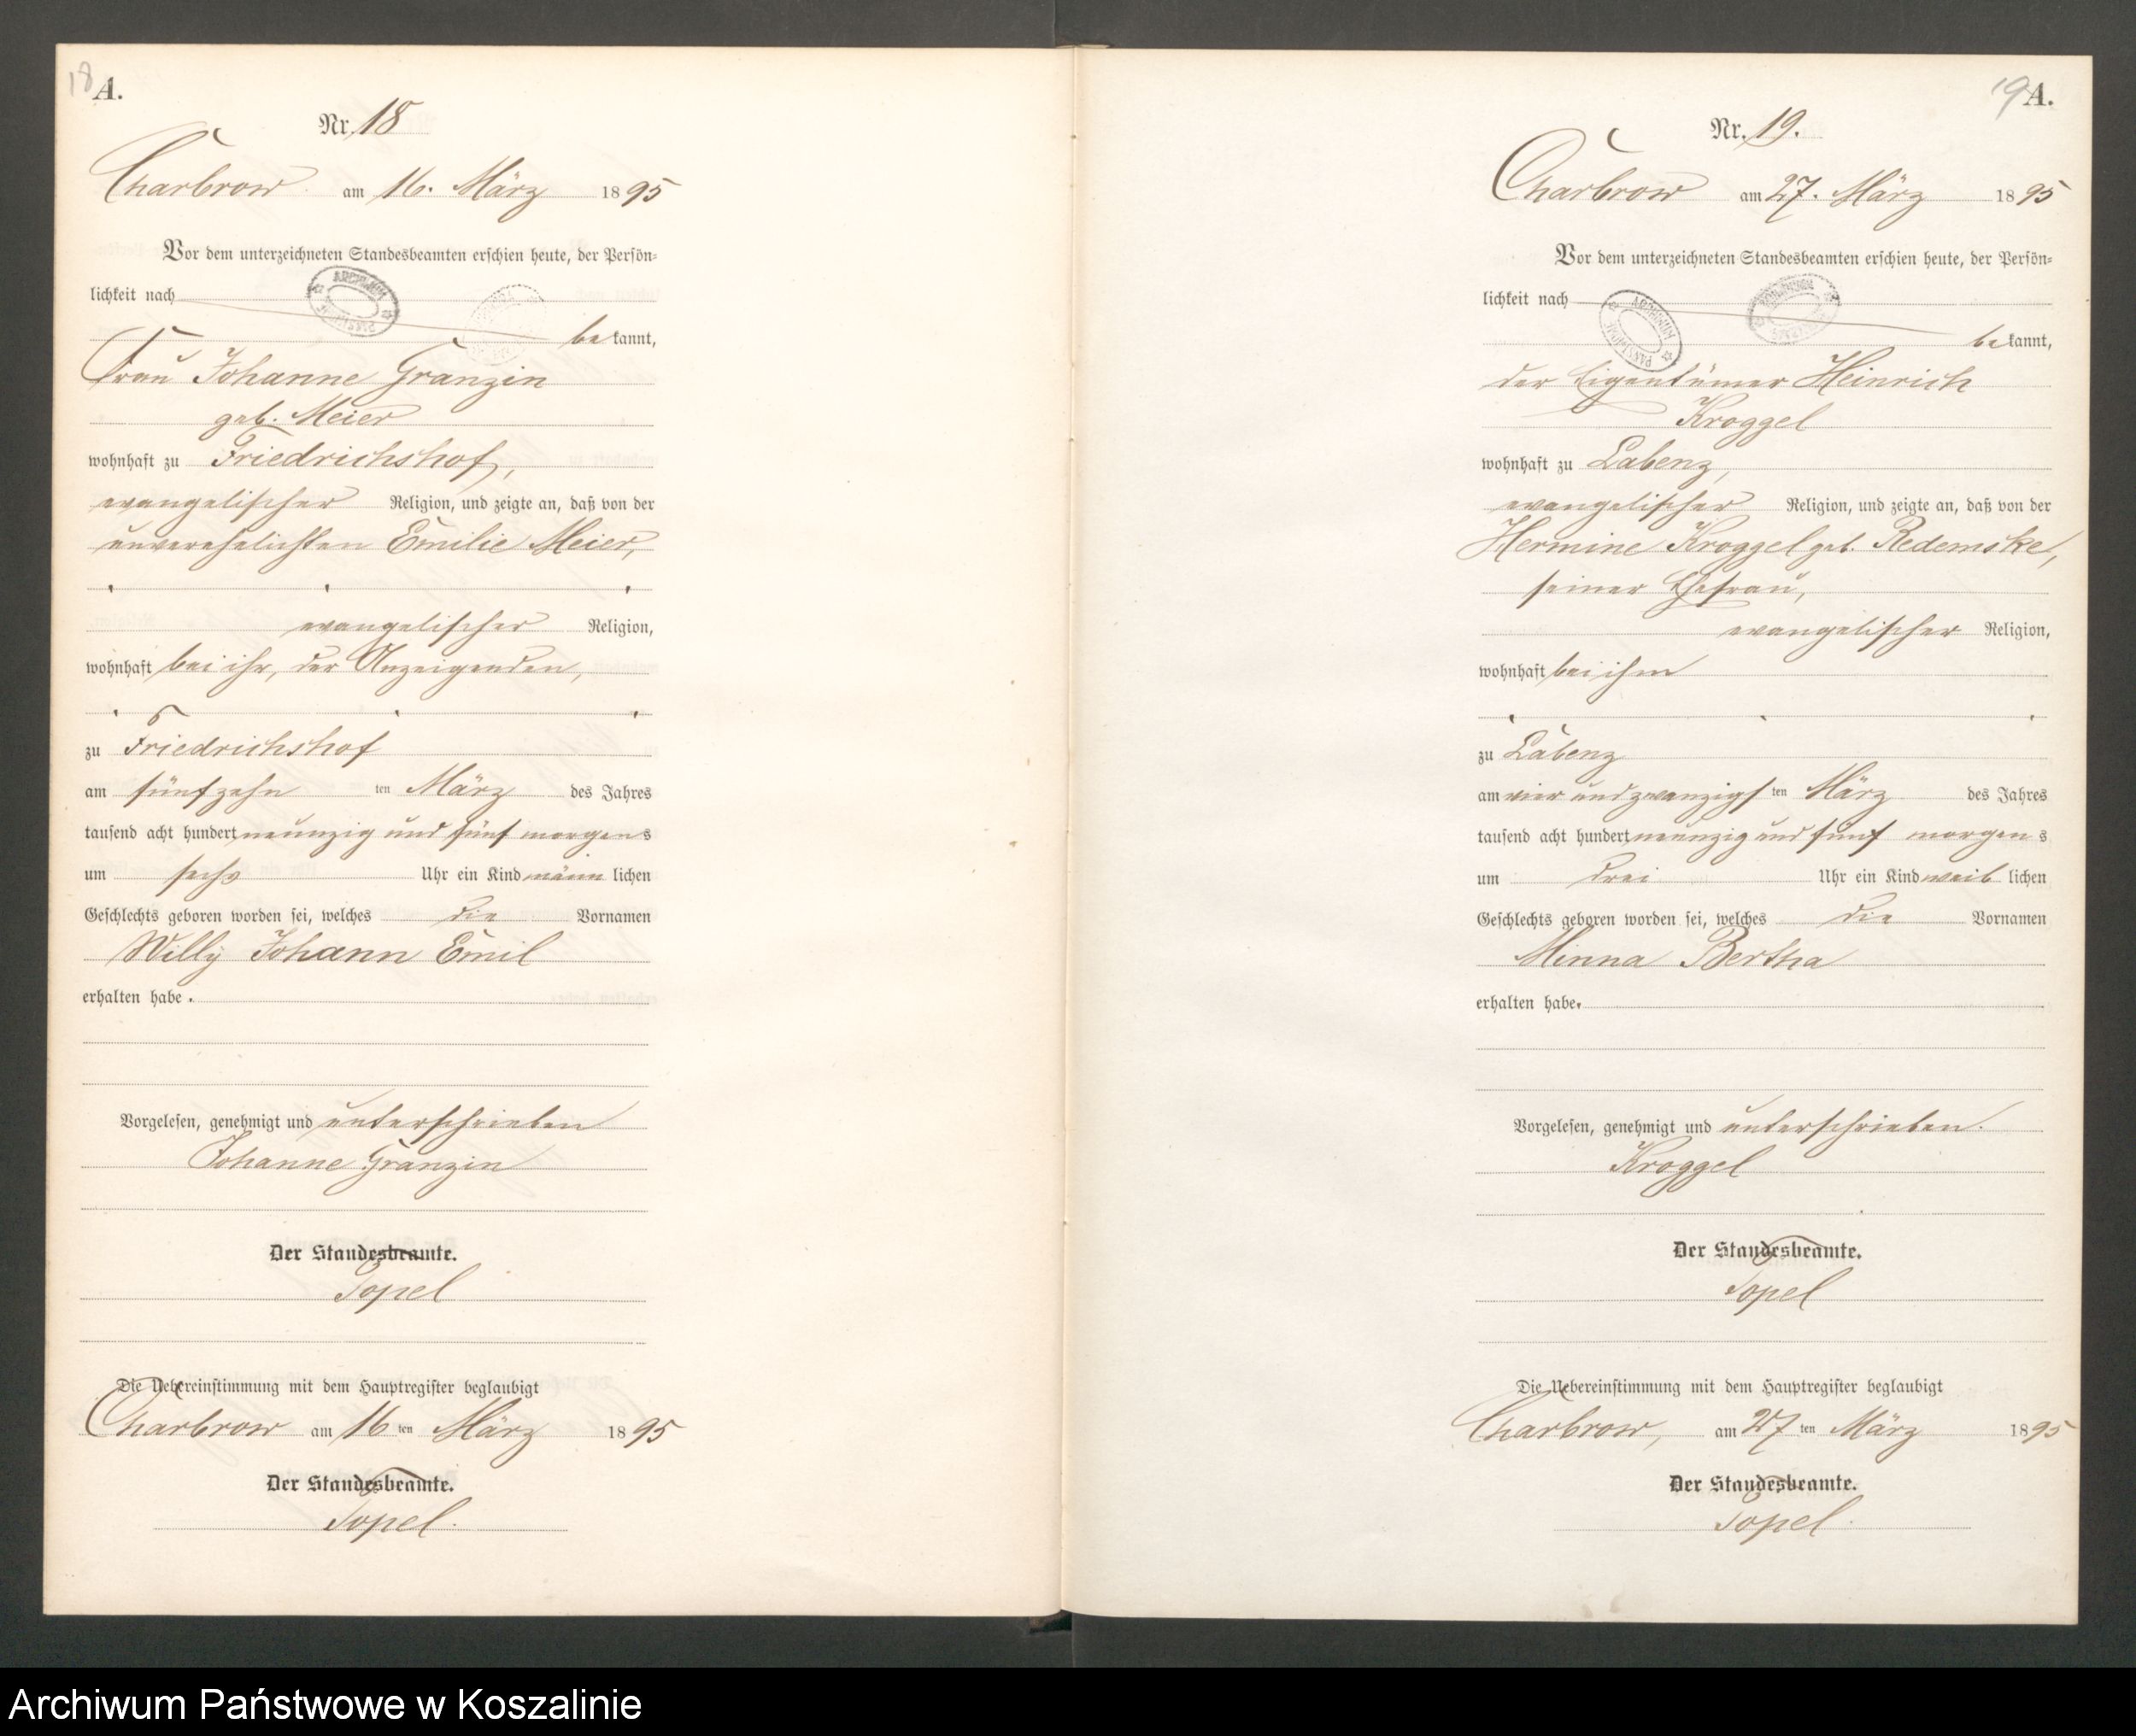 18 A.
Nr. 18
Charbrow am 16. März 1895
Vor dem unterzeichneten Standesbeamten erschien heute, der Persön-
lichkeit nach
bekannt,
Frau Johanne Granzin
geb. Meier
wohnhaft zu Friedrichshof,
evangelischer Religion, und zeigte an, daß von der
unverehelichten Emilie Meier,
evangelischer Religion,
wohnhaft bei ihr, der Anzeigenden,
zu Friedrichshof
am fünfzehn ten März des Jahres
tausend acht hundert neunzig und fünf morgens
um sechs Uhr ein Kind männlichen
Geschlechts geboren worden sei, welches die Vornamen
Willy Johann Emil
erhalten habe.
Vorgelesen, genehmigt und unterschrieben
Johanne Granzin
Der Standesbeamte.
Topel
Die Uebereinstimmung mit dem Hauptregister beglaubigt
Charbrow am 16 ten März 1895
Der Standesbeamte.
Topel.
19 A.
Nr. 19.
Charbrow am 27. März 1895
Vor dem unterzeichneten Standesbeamten erschien heute, der Persön-
lichkeit nach
bekannt,
der Eigentümer Heinrich
Kroggel
wohnhaft zu Labenz,
evangelischer Religion, und zeigte an, daß von der
Hermine Kroggel geb. Redemske,
seiner Ehefrau,
evangelischer Religion,
wohnhaft bei ihm
zu Labenz
am vier und zwanzigsten März des Jahres
tausend acht hundert neunzig und fünf morgens
um drei Uhr ein Kind weiblichen
Geschlechts geboren worden sei, welches die Vornamen
Minna Bertha
erhalten habe.
Vorgelesen, genehmigt und unterschrieben.
Kroggel
Der Standesbeamte.
Topel
Die Uebereinstimmung mit dem Hauptregister beglaubigt
Charbrow, am 27 ten März 1895
Der Standesbeamte.
Topel.
Archiwum Państwowe w Koszalinie